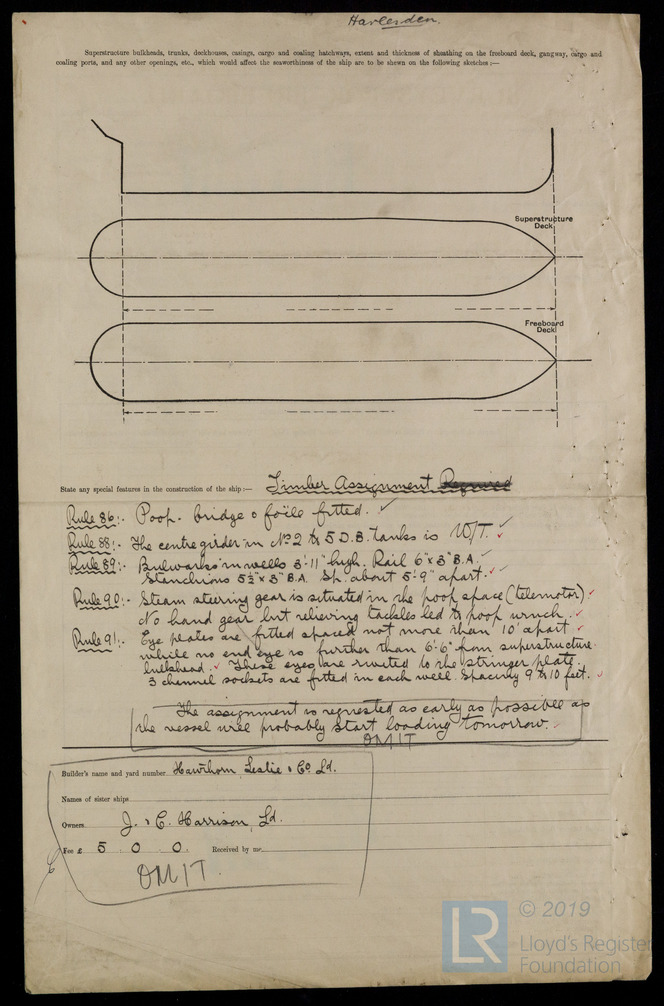 Harlesden.
Superstructure bulkheads, trunks, deckhouses, casings, cargo and coaling hatchways, extent and thickness of sheathing on the freeboard deck, gangway, cargo and
coaling ports, and any other openings, etc., which would affect the seaworthiness of the ship are to be shewn on the following sketches :—
Superstructure
Deck
Freeboard
Deck
State any special features in the construction of the ship :— Timber Assignment Required
Rule 86:- Poop - bridge & fo'c'le fitted.
Rule 88:- The centre girder in No 2 to 5 D.B. tanks is W/T.
Rule 89:- Bulwarks in wells 3'-11" high. Rail 6" x 3" B.A.
Stanchions 5½" x 3" B.A. Sp. about 5'-9" apart.
Rule 90:- Steam steering gear is situated in the poop space (telemotor)
No hand gear but relieving tackles led to poop winch.
Rule 91:- Eye plates are fitted spaced not more than 10' apart
while no end eye is further than 6'-6" from superstructure
bulkhead. These eyes are riveted to the stringer plate.
3 channel sockets are fitted in each well. Spacing 9 to 10 feet.
The assignment is requested as early as possible as
the vessel will probably start loading tomorrow.
OMIT
Builder's name and yard number Hawthorn, Leslie & Co. Ld.
Names of sister ships
Owners J. & C. Harrison, Ld.
Fee £ 5 . 0 . 0 . Received by me
OMIT.
LR
© 2019
Lloyd's Register
Foundation